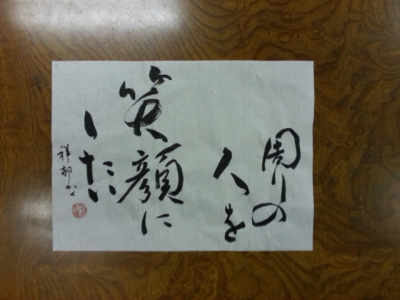 周りの
人を
笑顔に
したい